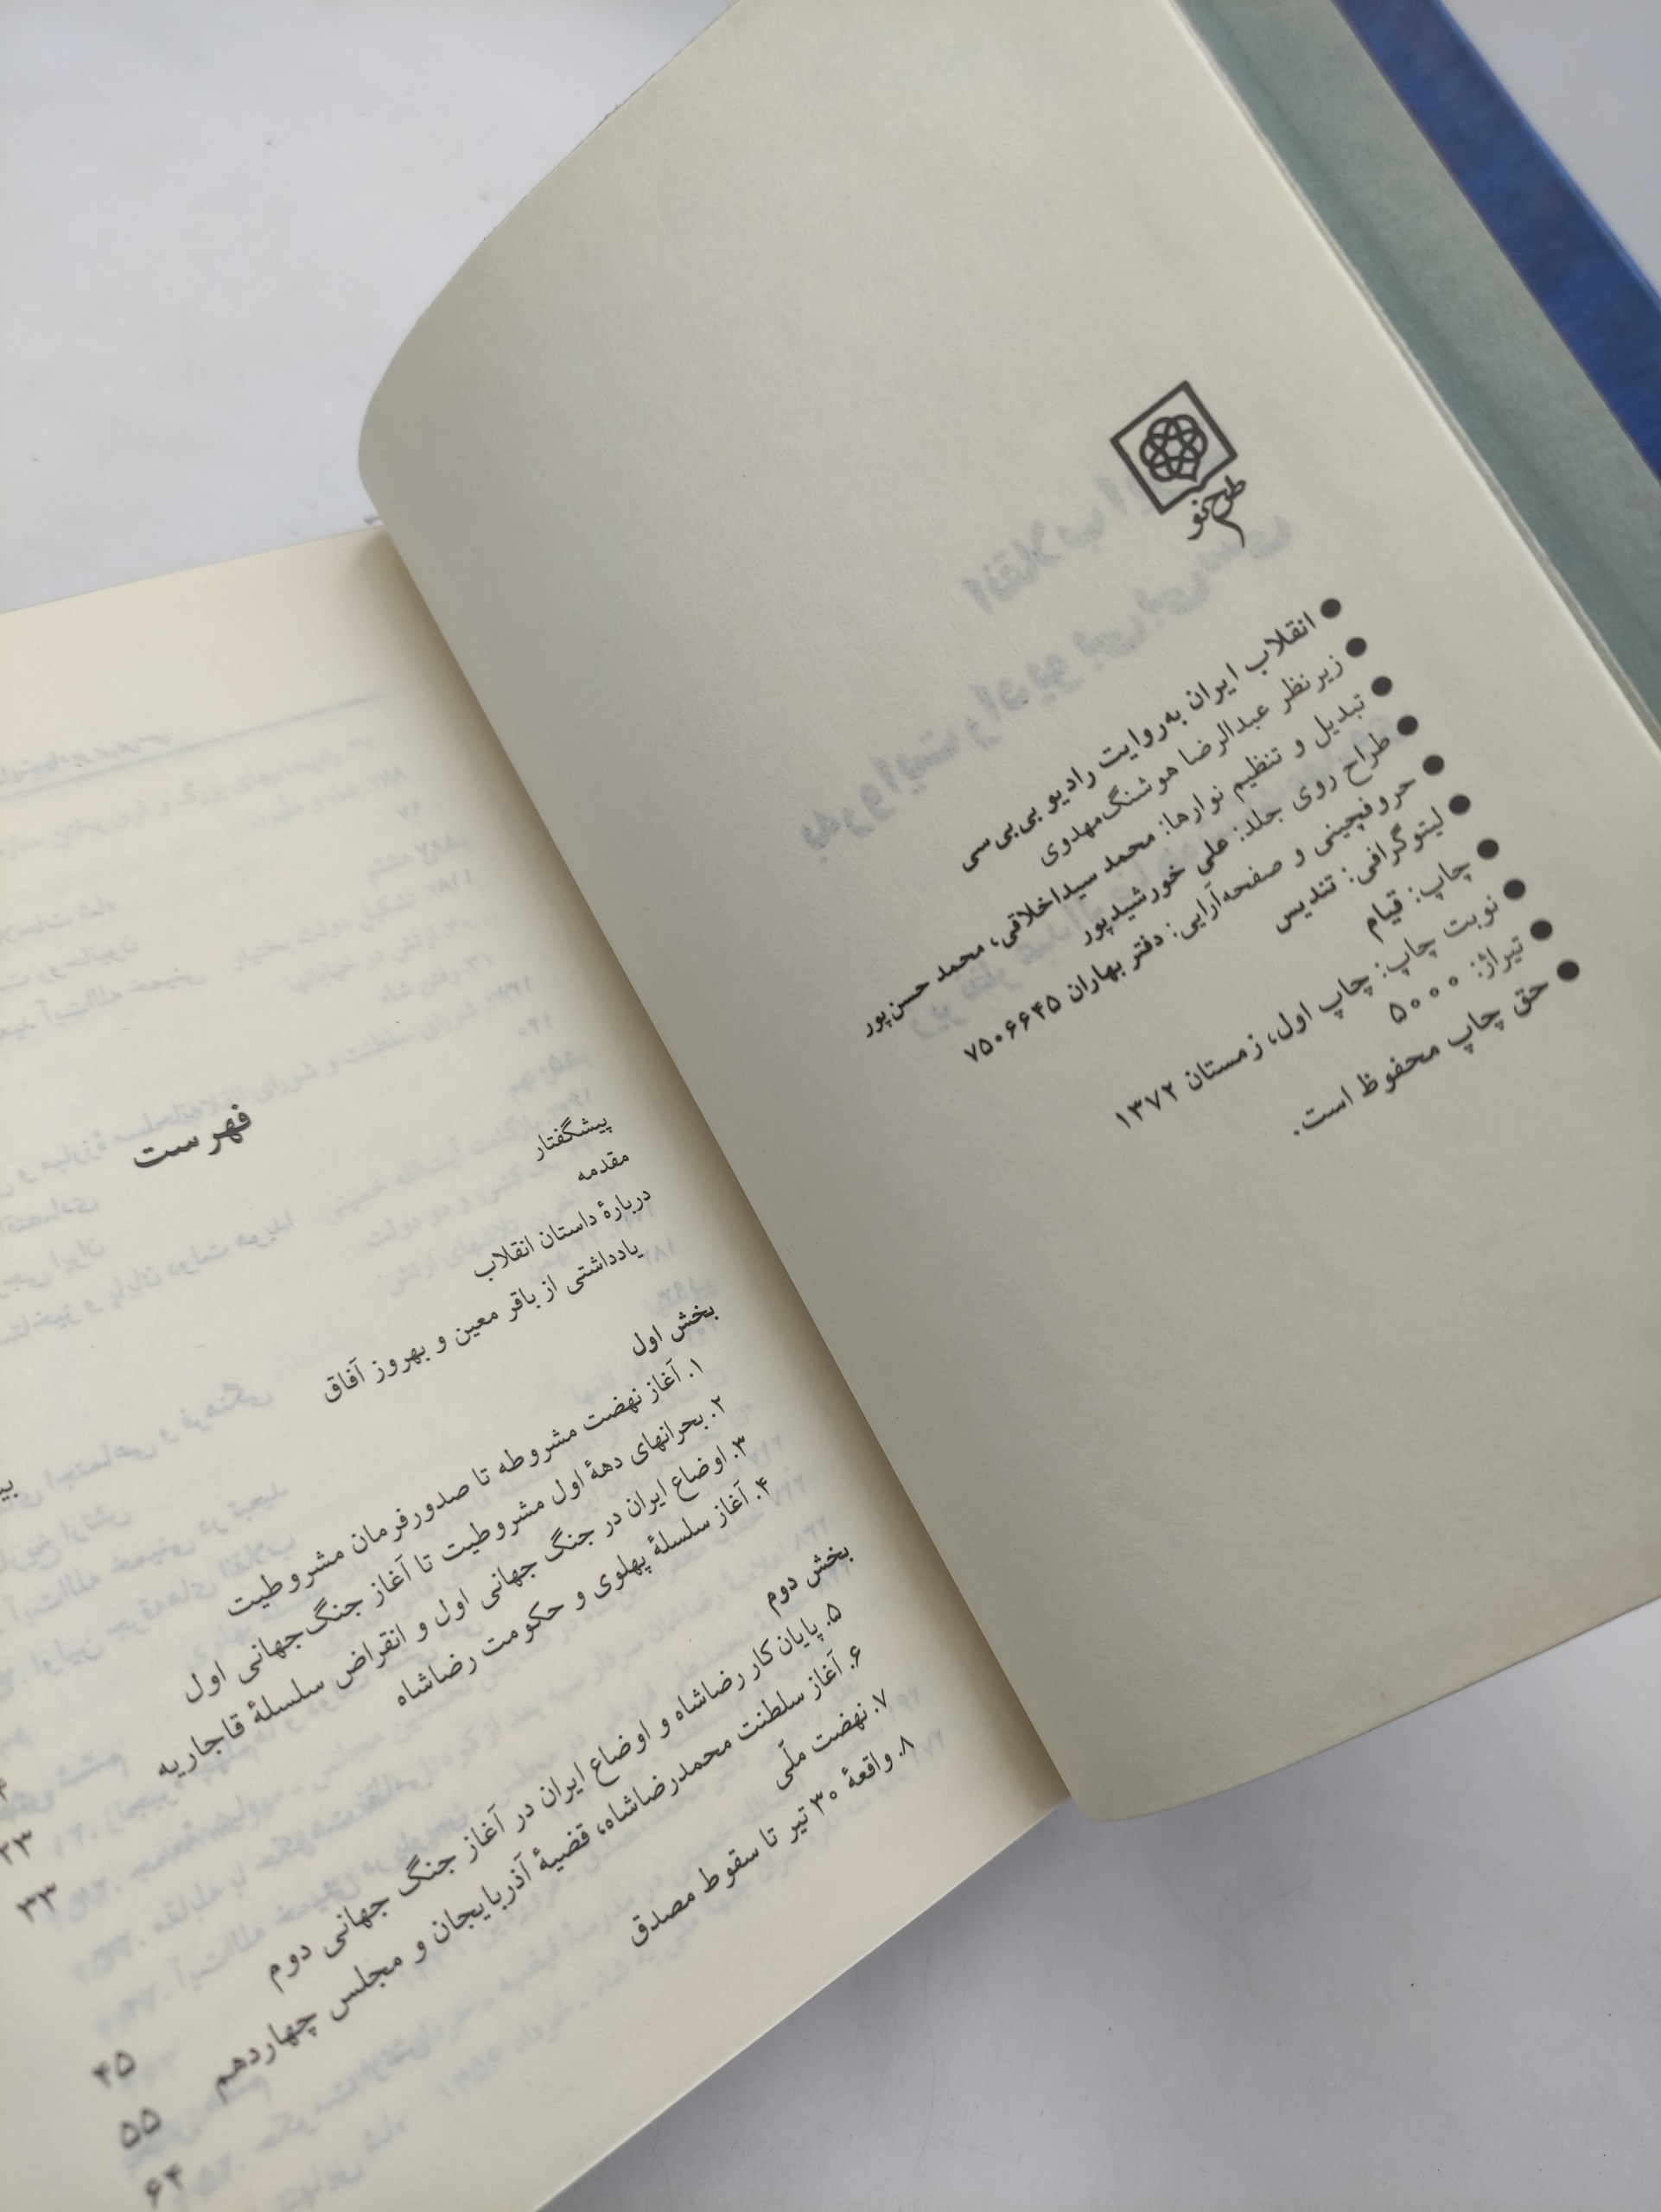 طرح نو
● انقلاب ایران به‌روایت رادیو بی‌بی‌سی
● زیرنظر عبدالرضا هوشنگ‌مهدوی
● تبدیل و تنظیم نوارها: محمد سیداخلاقی، محمد حسن‌پور
● طراح روی جلد: علی خورشیدپور
● حروفچینی و صفحه‌آرایی: دفتر بهاران ۷۵۰۶۶۴۵
● لیتوگرافی: تندیس
● چاپ: قیام
● نوبت چاپ: چاپ اول، زمستان ۱۳۷۲
● تیراژ: ۵۰۰۰
● حق چاپ محفوظ است.
فهرست
پیشگفتار
مقدمه
دربارهٔ داستان انقلاب
یادداشتی از باقر معین و بهروز آفاق
بخش اول
۱. آغاز نهضت مشروطه تا صدورفرمان مشروطیت
۲. بحرانهای دههٔ اول مشروطیت تا آغاز جنگ‌جهانی اول
۳. اوضاع ایران در جنگ جهانی اول و انقراض سلسلهٔ قاجاریه ۲۳
۴. آغاز سلسلهٔ پهلوی و حکومت رضاشاه ۳۳
بخش دوم
۵. پایان‌کار رضاشاه و اوضاع ایران در آغاز جنگ جهانی دوم ۴۵
۶. آغاز سلطنت محمدرضاشاه، قضیهٔ آذربایجان و مجلس چهاردهم ۵۵
۷. نهضت ملّی ۶۴
۸. واقعهٔ ۳۰ تیر تا سقوط مصدق